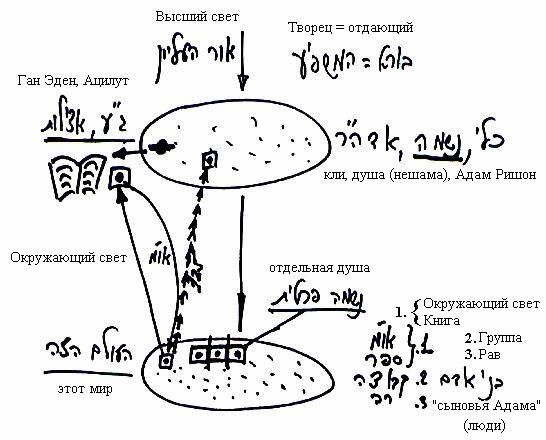 Высший свет
Творец = отдающий
אור העליון
בורא = המשפיע
Ган Эден, Ацилут
ג"ע, אצילות
כלי, נשמה, אדה"ר
кли, душа (нешама), Адам Ришон
Окружающий свет
או"מ
отдельная душа
נשמה פרטית
1. { Окружающий свет
Книга
2. Группа
3. Рав
העולם הזה
этот мир
או"מ
ספר } .1
קבוצה .2 בני אדם
רב .3
"сыновья Адама"
(люди)